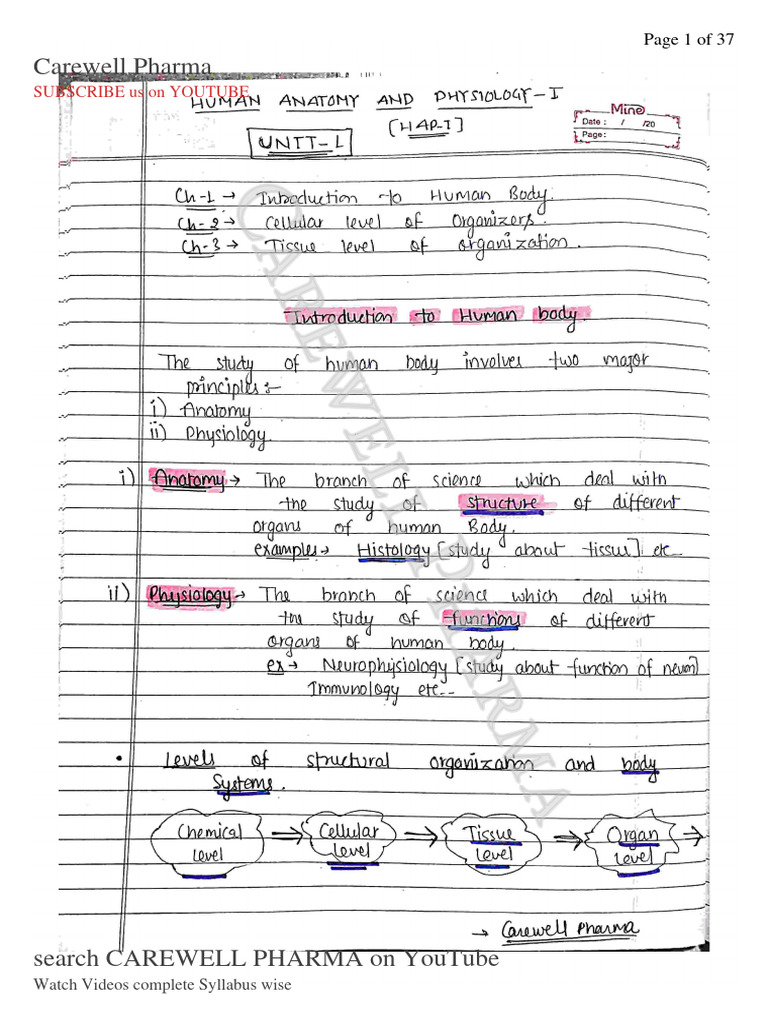 Page 1 of 37
Carewell Pharma
SUBSCRIBE us on YOUTUBE
HUMAN ANATOMY AND PHYSIOLOGY-I
[HAP-I]
UNIT-1
Mine
Date : / /20
Page:
Ch-1 → Introduction to Human Body.
Ch-2 → Cellular level of Organizers.
Ch-3 → Tissue level of organization.
Introduction to Human body.
The study of human body involves two major
principles :-
i) Anatomy
ii) Physiology.
i) Anatomy → The branch of science which deal with
the study of structure of different
organs of human Body.
examples → Histology [study about tissue] etc
ii) Physiology → The branch of science which deal with
the study of functions of different
organs of human body.
ex → Neurophysiology [study about function of neuron]
Immunology etc--
• Levels of structural organization and body
Systems.
Chemical level ⇒ Cellular level ⇒ Tissue level ⇒ Organ level ⇒
→ Carewell Pharma
CAREWELL PHARMA
search CAREWELL PHARMA on YouTube
Watch Videos complete Syllabus wise